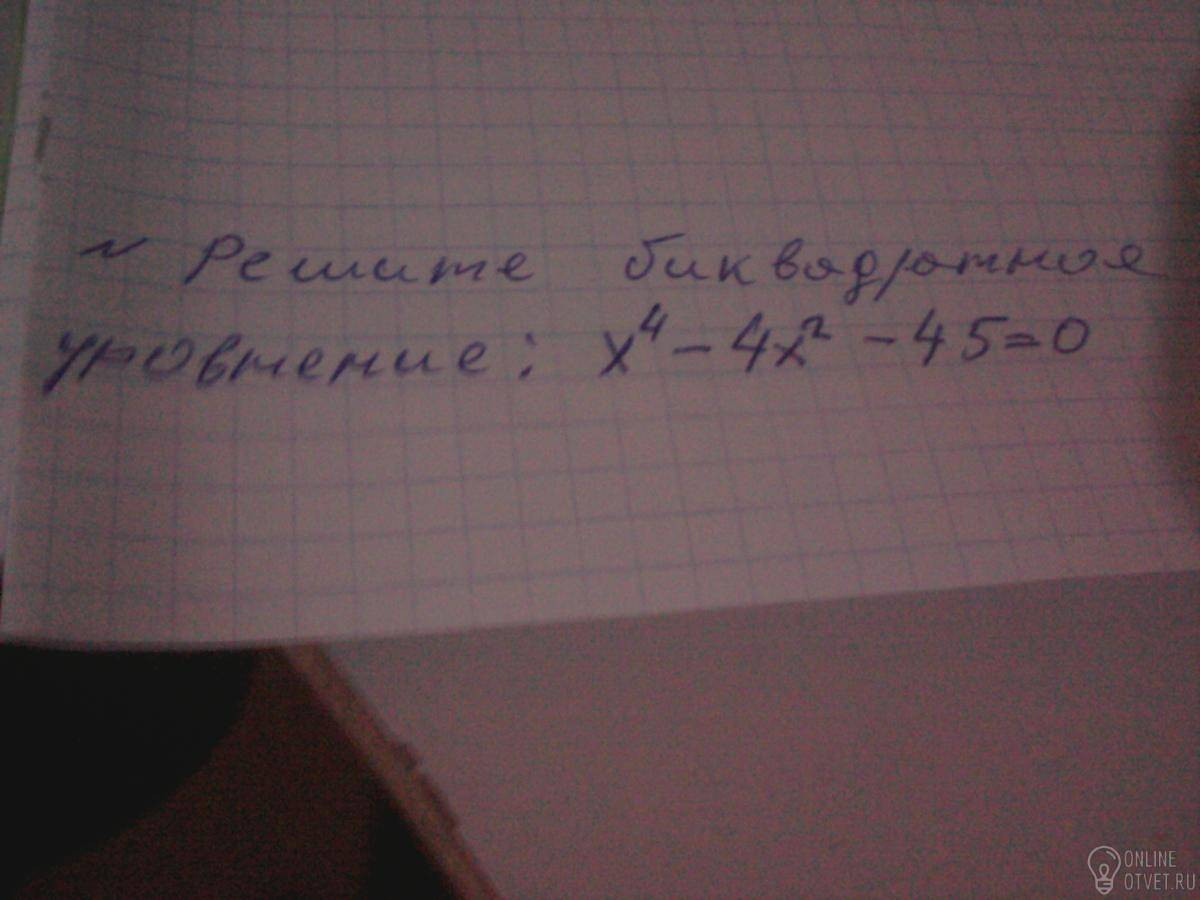 ~ Решите биквадратное
уровнение: x⁴ - 4x² - 45 = 0
ONLINE
OTVET.RU